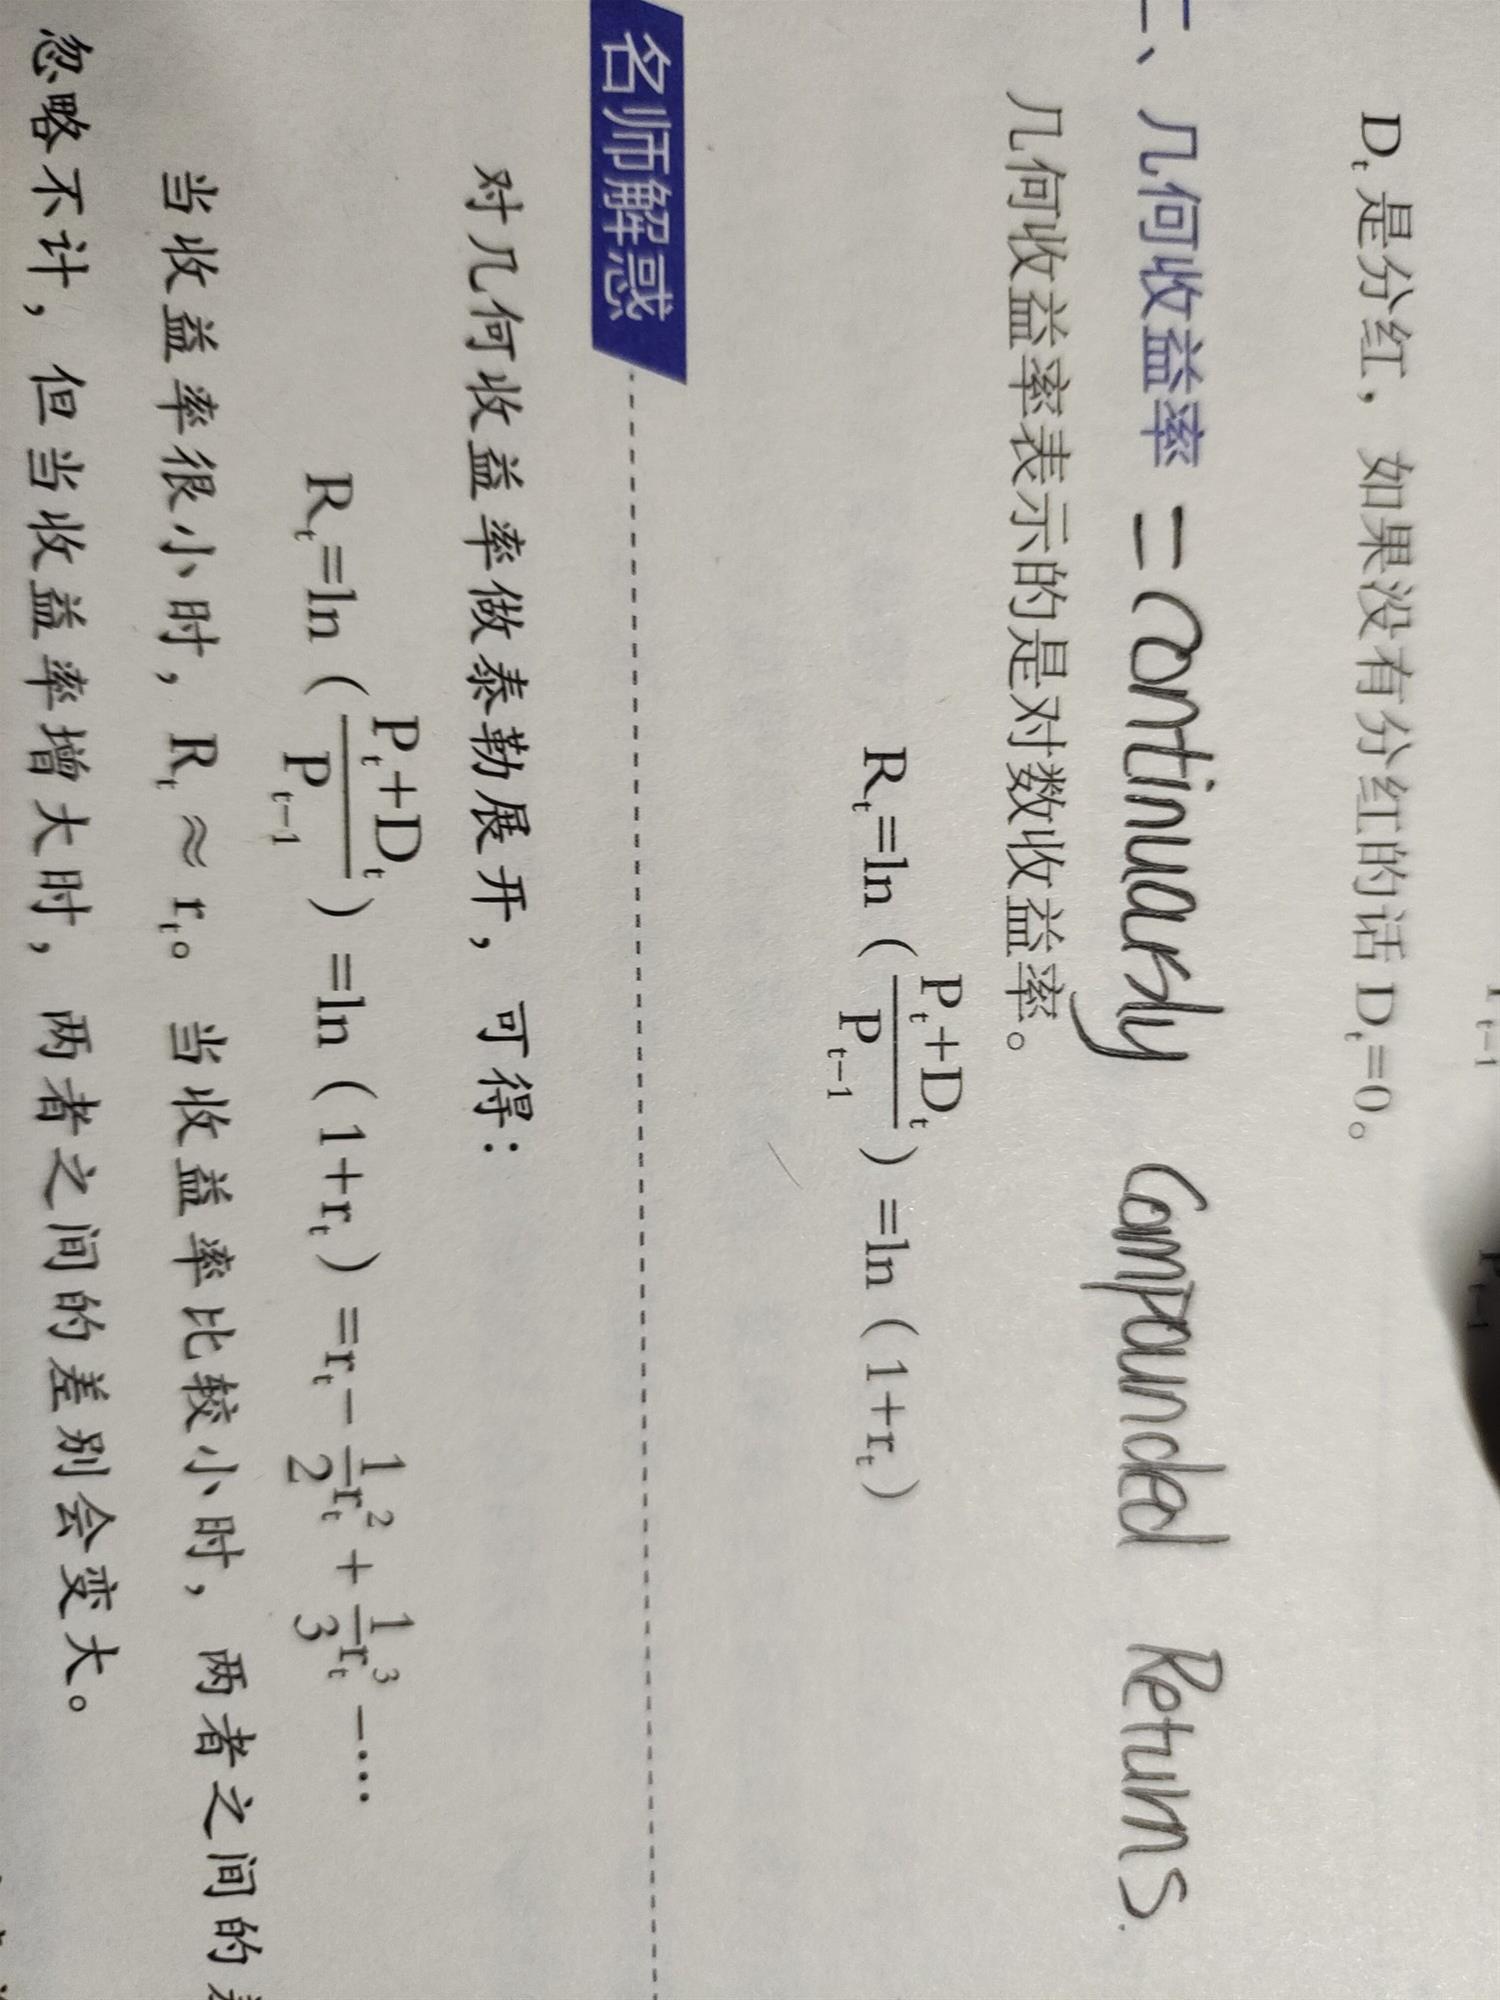 D_t是分红，如果没有分红的话 D_t=0。
二、几何收益率 = Continuously Compounded Returns.
几何收益率表示的是对数收益率。
R_t=ln（(P_t+D_t)/P_{t-1}）=ln（1+r_t）
名师解惑
对几何收益率做泰勒展开，可得：
R_t=ln（(P_t+D_t)/P_{t-1}）=ln（1+r_t）=r_t-1/2 r_t²+1/3 r_t³-…
当收益率很小时，R_t≈r_t。当收益率比较小时，两者之间的
忽略不计，但当收益率增大时，两者之间的差别会变大。